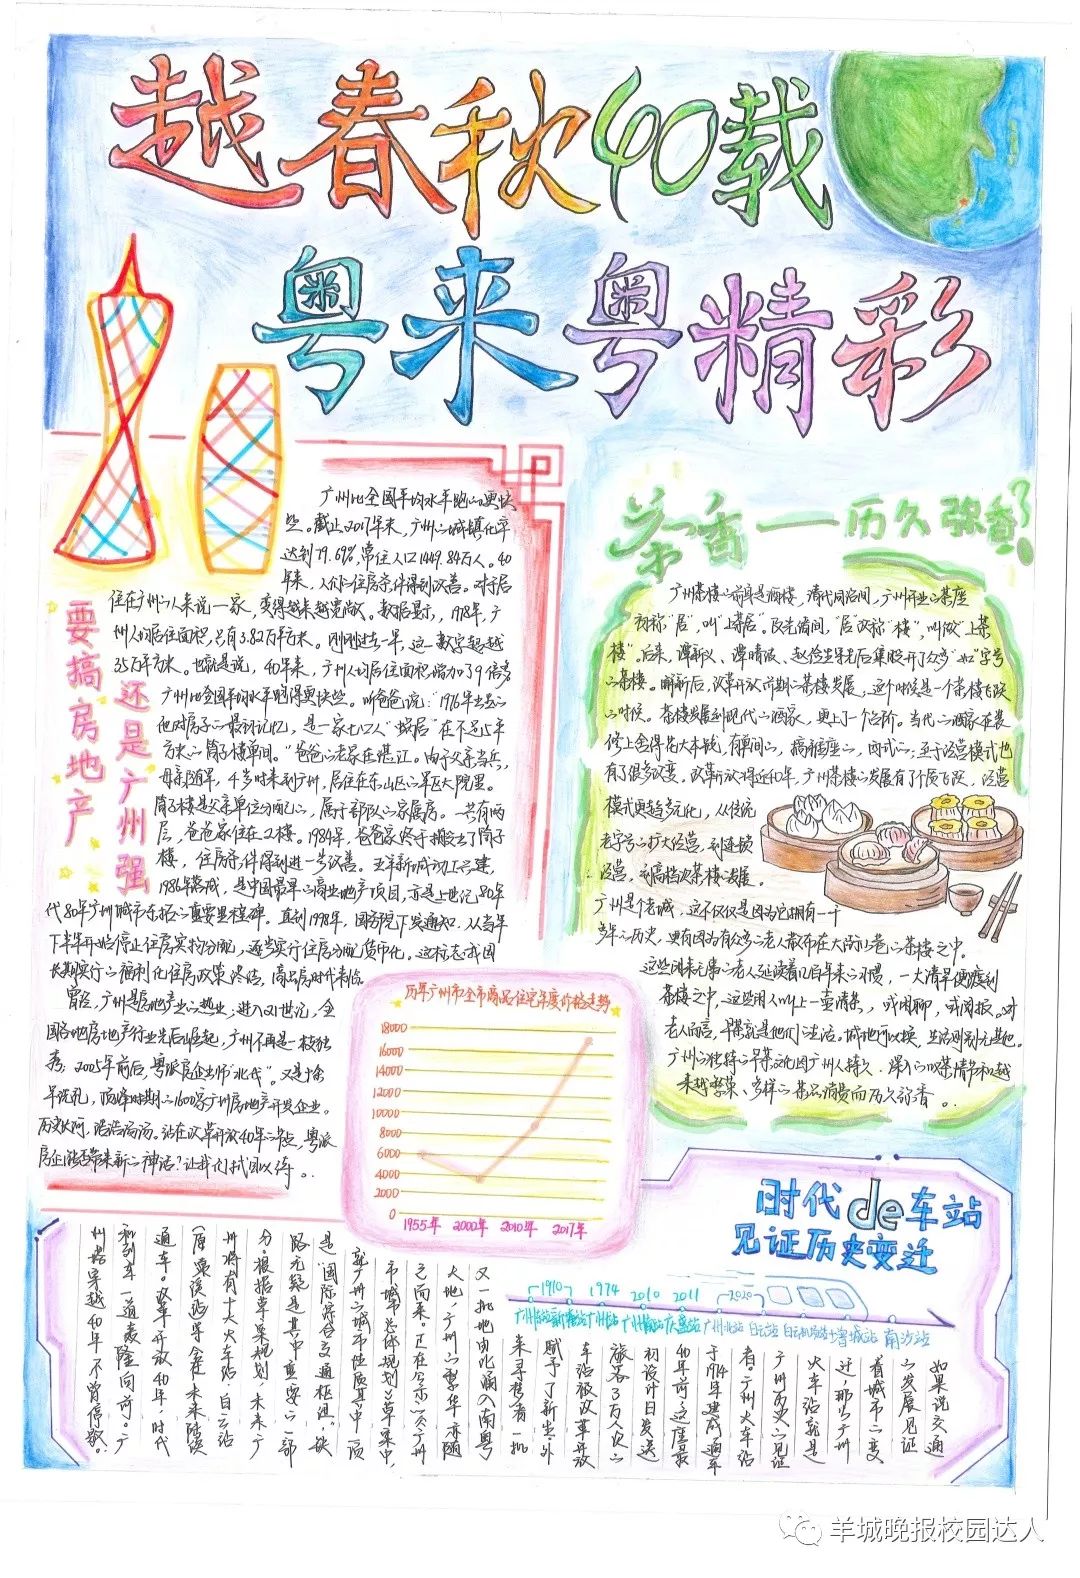 越春秋40载
粤来粤精彩
要搞房地产
还是广州强
广州比全国平均水平跑的更快
些。截止2017年末，广州的城镇化率
达到79.69%，常住人口1449.84万人。40
年来，人们的住房条件得到改善。对于居
住在广州的人来说一家，变得越来越宽敞。数据显示，1978年，广
州人均居住面积，只有3.82万平方米。刚刚过去一年，这一数字超越
35万平方米。也就是说，40年来，广州人均居住面积增加了9倍多
广州比全国平均水平跑得更快些。听爸爸说：“1976年出生的
他对房子的最初记忆，是一家七口人“蜗居”在不足15平
方米的筒子楼单间。”爸爸的老家在湛江。由于父亲当兵，
母亲随军，4岁时来到广州，居住在东山区的军区大院里。
筒子楼是父亲单位分配的，属于部队的家属房。一共有两
层，爸爸家住在2楼。1984年，爸爸家终于搬出了筒子
楼，住房条件得到进一步改善。五羊新城动工兴建，
1986年落成，是中国最早的商业地产项目，亦是上世纪80年
代80年广州城市东拓的重要里程碑。直到1998年，国务院下发通知，从当年
下半年开始停止住房实物分配，逐步实行住房分配货币化，这标志我国
长期实行的福利化住房政策终结，商品房时代来临。
曾经，广州是房地产业的热业；进入21世纪，全
国各地房地产行业先后崛起，广州不再是一枝独
秀；2005年前后，粤派房企出师“北伐”。又是十余
年洗礼，顶峰时期的1600家广州房地产开发企业。
历史长河，浩浩汤汤。站在改革开放40年的节点，粤派
房企能否带来新的神话？让我们拭目以待。
历年广州市全市商品住宅年度价格走势
18000
16000
14000
12000
10000
8000
6000
4000
2000
0
1955年 2000年 2010年 2017年
茶香——历久弥香
广州茶楼的前身是酒楼，清代同治间，广州开业的茶座
初称“居”，叫“上茶居”。及光绪间，“居”改称“楼”，叫做“上茶
楼”。后来，谭新义、谭晴波、赵俭生等先后集股开了众多“如”字号
的茶楼。解新后，改革开放前期的茶楼发展，这个时候是一个茶楼飞跃
的时候。茶楼发展到现代的酒家，更上了一个台阶。当代的酒家在装
修上舍得花大本钱，有单间的，榜雅座的，西式的；至于经营模式也
有了很多改变。改革开放将近40年，广州茶楼的发展有了个质飞跃，经营
模式更趋多元化，从传统
老字号的扩大经营，到连锁
经营，到高档次茶楼发展。
广州是个老城，这不仅仅是因为它拥有一千
多年的历史，更有因为有众多的老人散布在大街小巷的茶楼之中。
这些闲来无事的老人延续着几百年来的习惯，一大清早便渡到
茶楼之中，这些用人叫上一壶清茶，或闲聊，或阅报。对
老人而言，早餐就是他们的生活。城池可以换，生活则别无其他。
广州的独特的早茶文化因广州人持久、深入的叹茶情节和越
来越繁荣、多样的茶品消费而历久弥香。
时代de车站
见证历史变迁
1910 1974 2010 2011 2020
广州站 广州南站 广州北站 白云站 增城站 南沙站
如果说交通
的发展见证
着城市的变
迁，那么广州
火车站就是
广州历史的见证
者。广州火车站
于1974年建成通车
40年前，这座最
初设计日发送
旅客3万人次的
车站被改革开放
赋予了新生，外
来寻梦者一批
又一批地由此涌入南粤
大地，广州的繁华亦随
之而来。正在公示的《广州
市城市总体规划》草案中，
就广州的城市性质其中一项
是“国际综合交通枢纽”，铁
路无疑是其中重要的一部
分，根据草案规划，未来广
州将有十大火车站，白云站
（原棠溪站）等会在未来陆续
通车。改革开放40年，时代
和列车一道轰隆向前。广
州塔穿越40年，不曾停歇。
羊城晚报校园达人